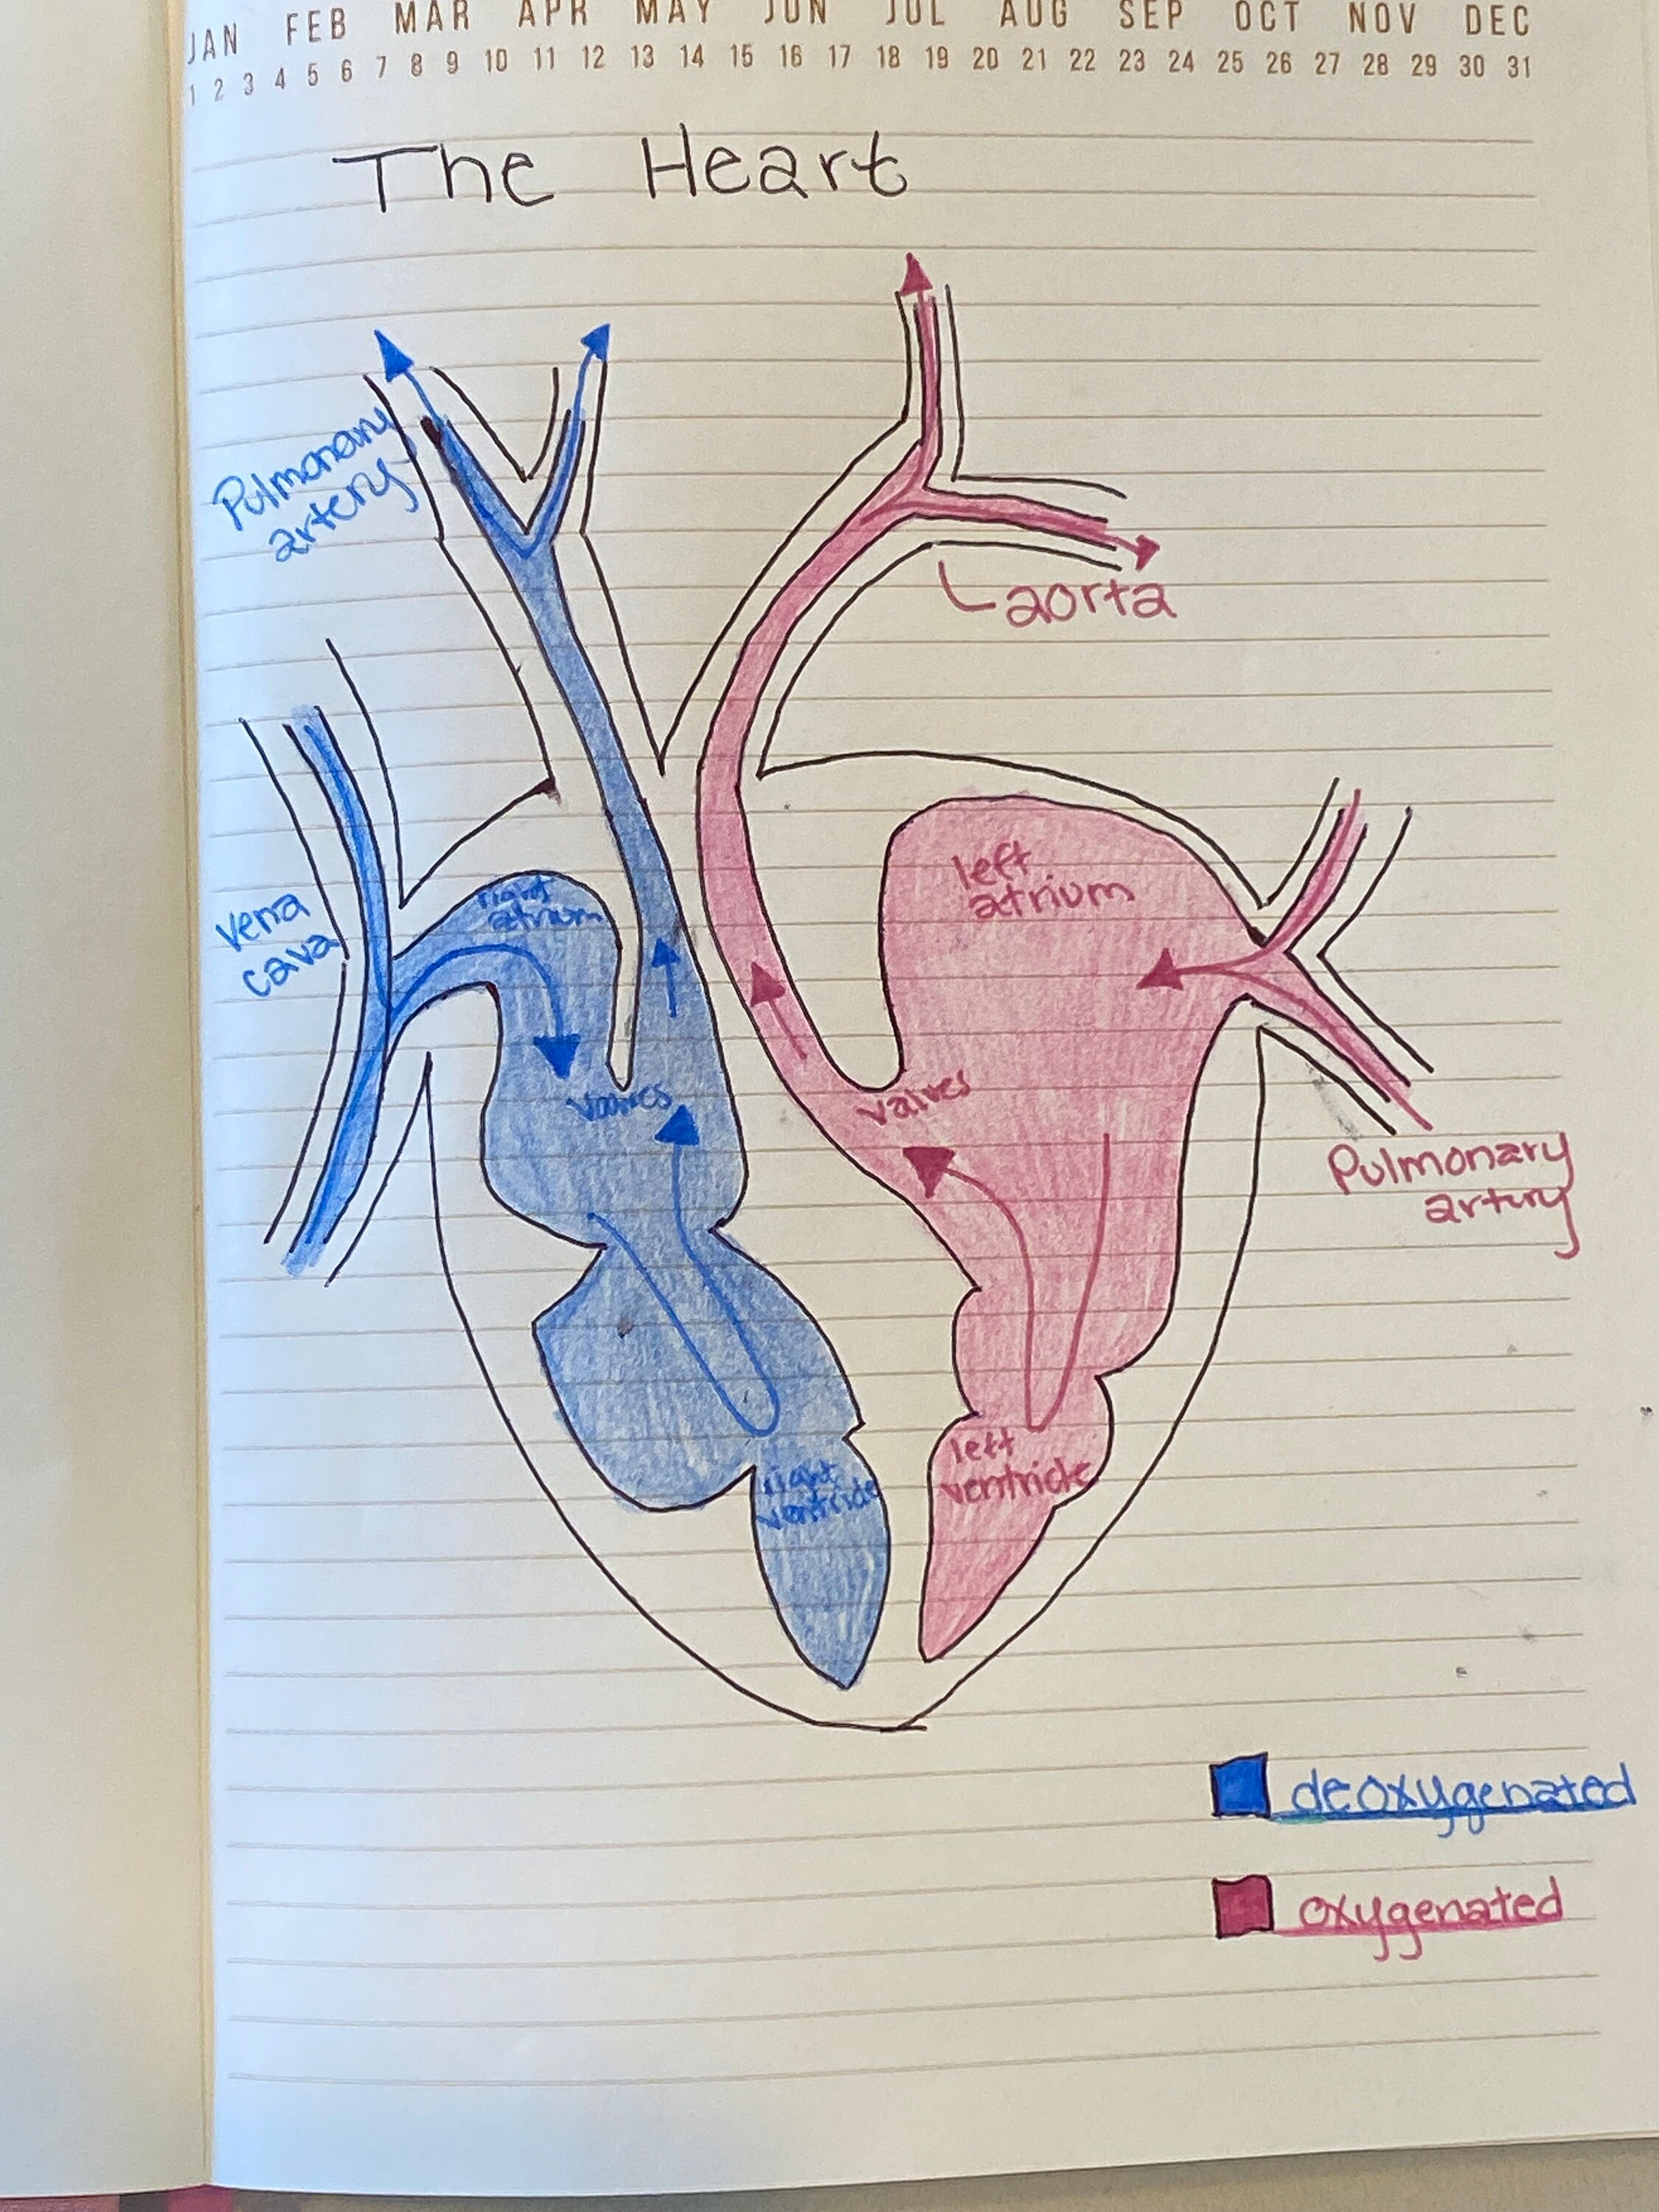 JAN FEB MAR APR MAY JUN JUL AUG SEP OCT NOV DEC
1 2 3 4 5 6 7 8 9 10 11 12 13 14 15 16 17 18 19 20 21 22 23 24 25 26 27 28 29 30 31
The Heart
Pulmonary
artery
aorta
left
atrium
right
atrium
vena
cava
valves
valves
Pulmonary
artery
left
ventricle
right
ventricle
deoxygenated
oxygenated